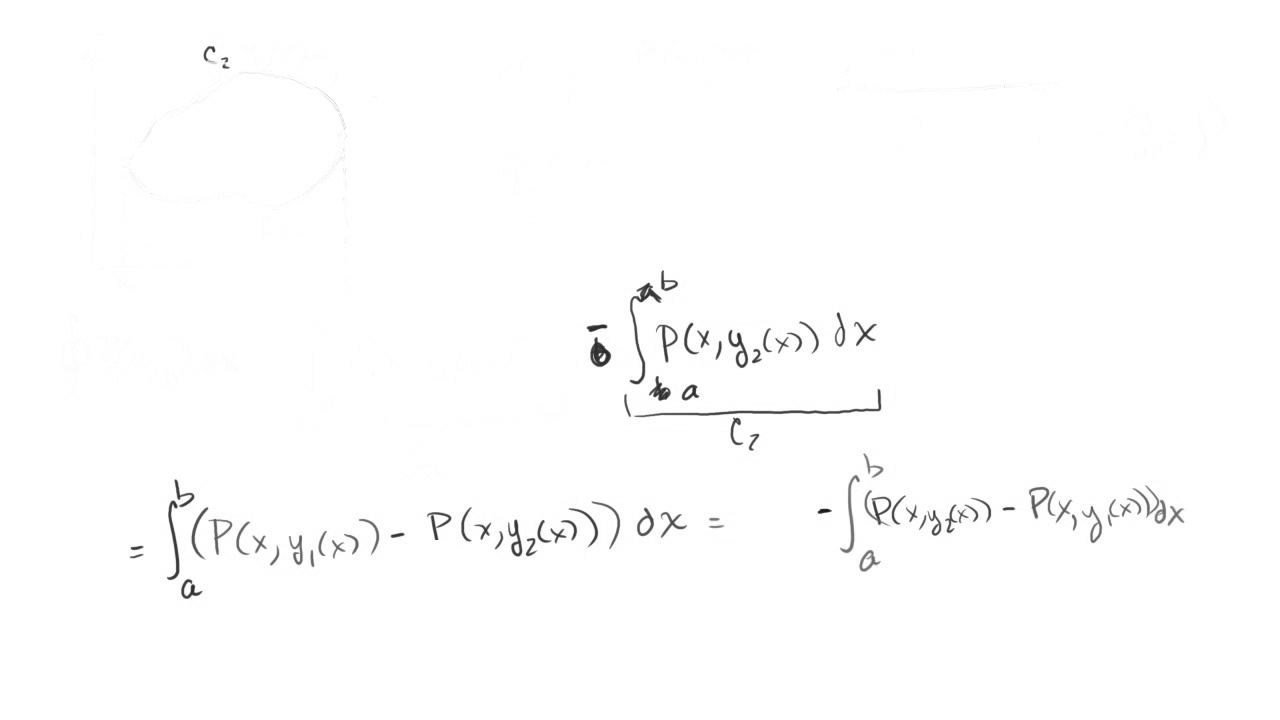 C₂
- ∫ₐᵇ P(x, y₂(x)) dx
C₂
= ∫ₐᵇ (P(x, y₁(x)) - P(x, y₂(x))) dx = - ∫ₐᵇ (P(x, y₂(x)) - P(x, y₁(x))) dx